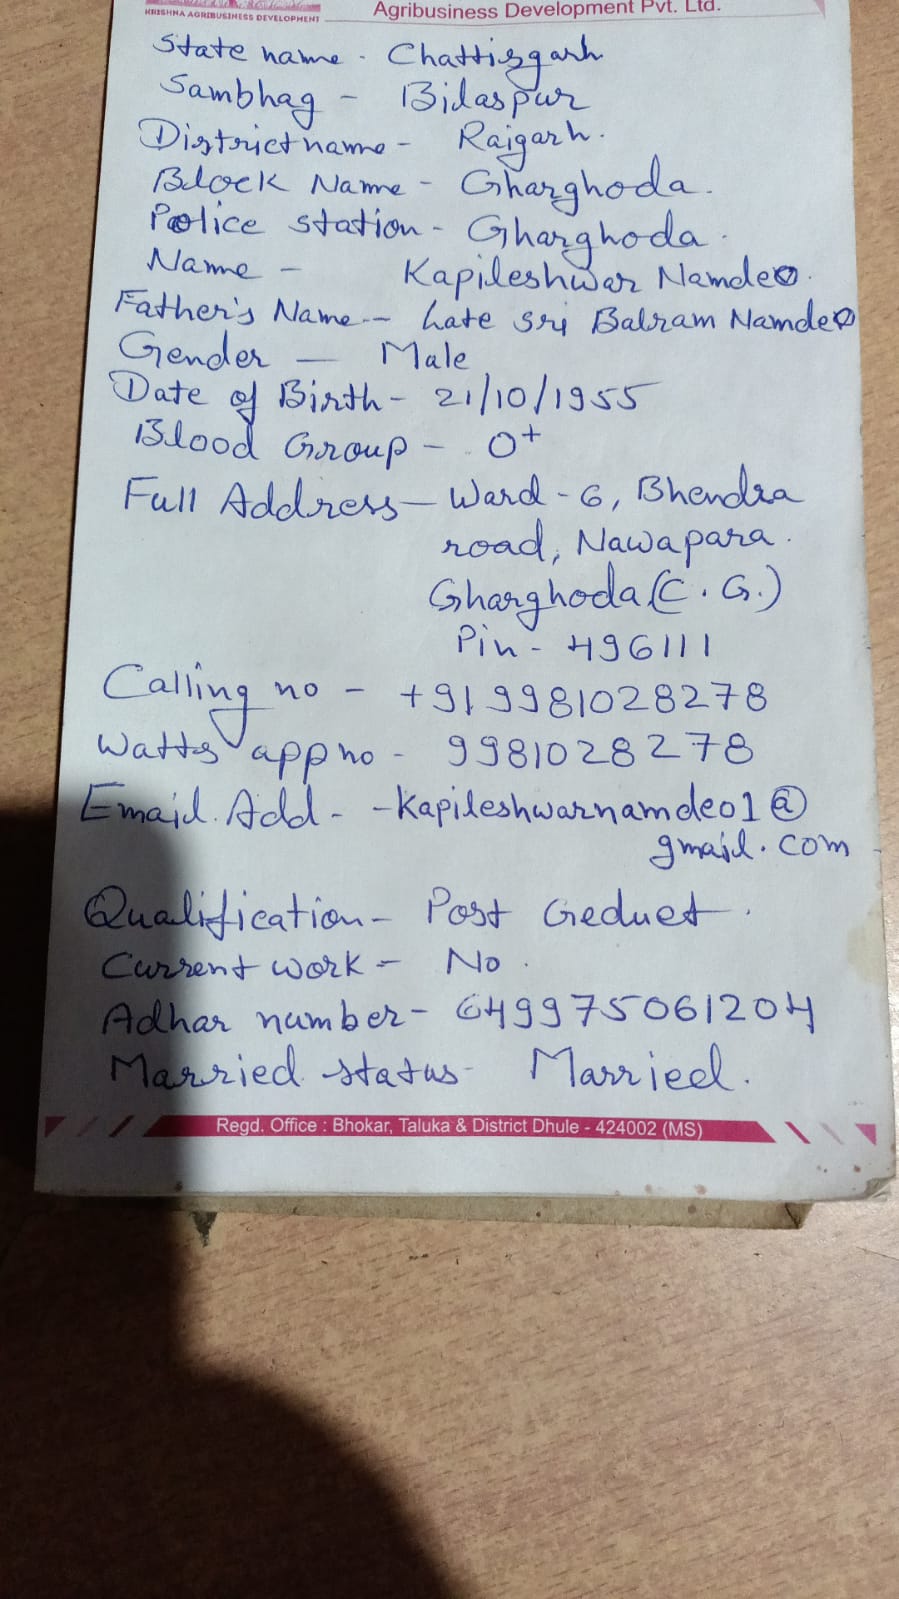 KRISHNA AGRIBUSINESS DEVELOPMENT
Agribusiness Development Pvt. Ltd.
State name - Chattisgarh
Sambhag - Bilaspur
District name - Raigarh.
Block Name - Gharghoda.
Police station - Gharghoda.
Name - Kapileshwar Namdeo.
Father's Name - Late sri Balram Namdeo
Gender - Male
Date of Birth - 21/10/1955
Blood Group - O+
Full Address - Ward - 6, Bhendra
road, Nawapara.
Gharghoda (C. G.)
Pin - 496111
Calling no - +919981028278
Watts app no - 9981028278
Email. Add - - Kapileshwarnamdeo1@
gmail.com
Qualification - Post Geduet.
Current work - No.
Adhar number - 649975061204
Married status - Married.
Regd. Office : Bhokar, Taluka & District Dhule - 424002 (MS)